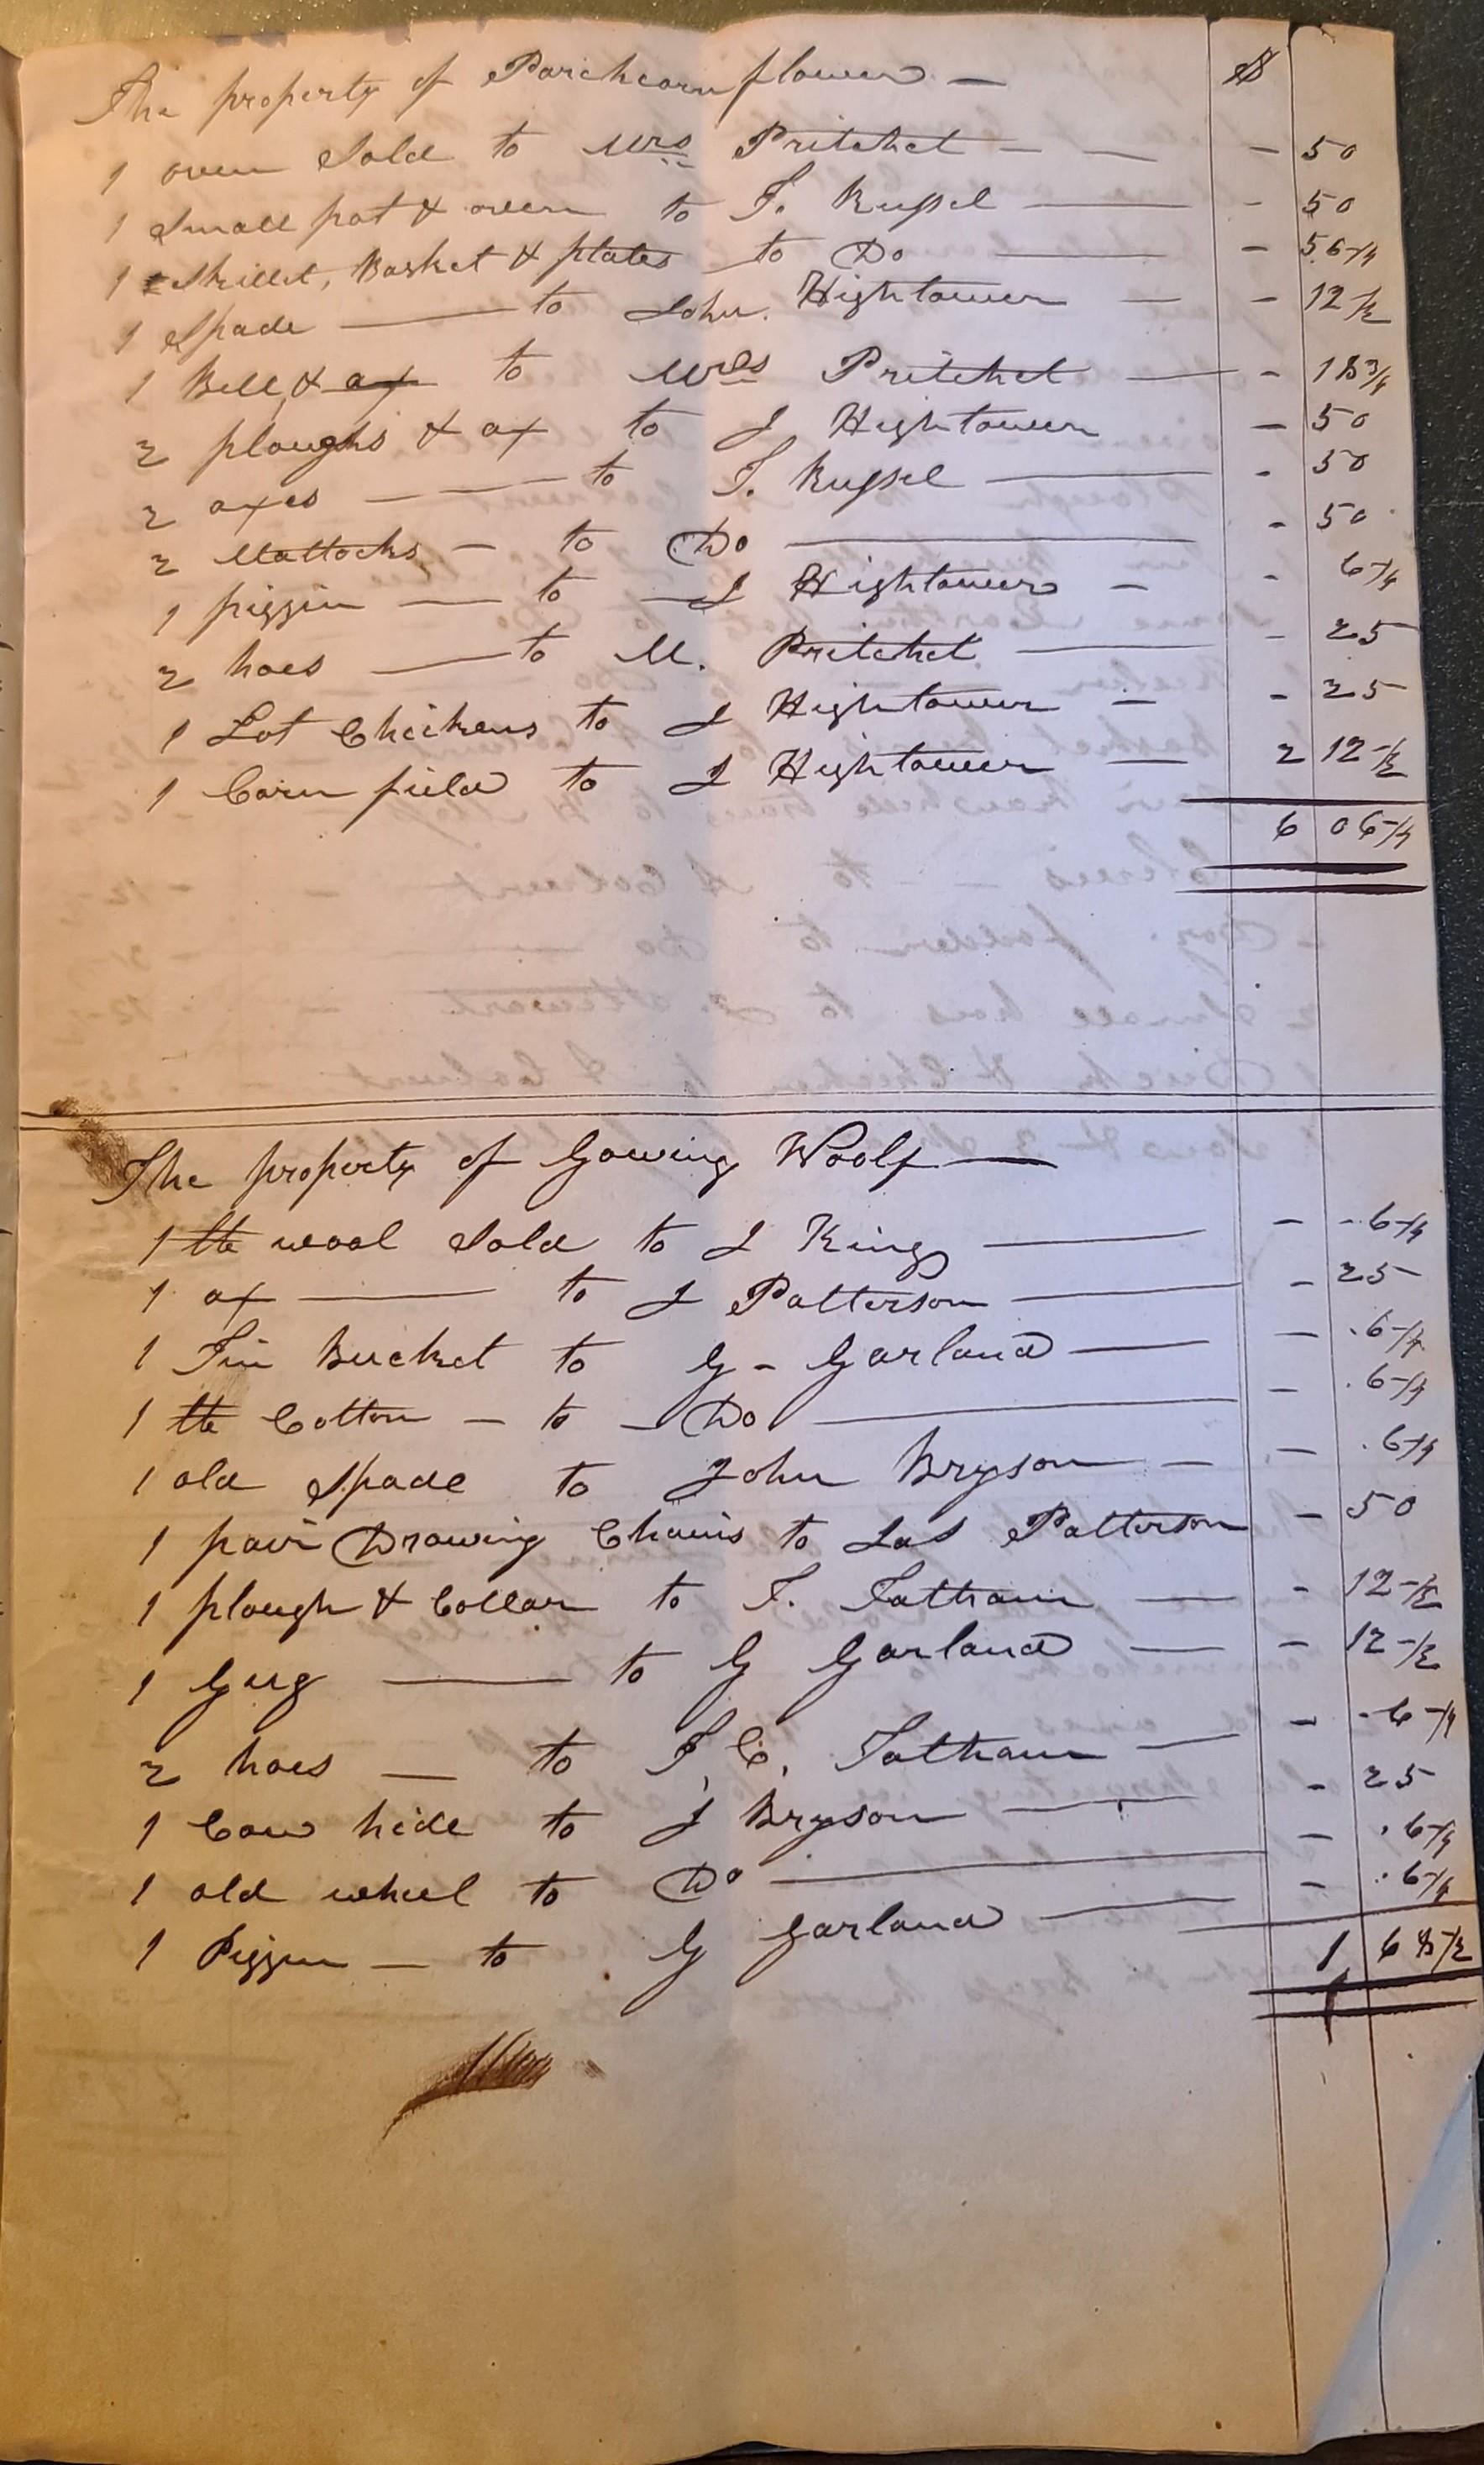 The property of Parchcornflower — $
1 oven Sold to Mrs Pritchet — — - 50
1 Small pot & oven to T. Russel — - 50
1 Skillet, Basket & plates to Do — - 56 1/4
1 Spade — to John. Hightower — - 12 1/2
1 Bell & ax to Mrs Pritchet — - 18 3/4
2 ploughs & ax to J Hightower - 50
2 axes — to T. Russel — - 50
2 Mattocks — to Do — - 50
1 piggin — to J Hightower — - 6 1/4
2 hoes — to M. Pritchet — - 25
1 Lot Chickens to J Hightower — - 25
1 Corn field to J Hightower — 2 12 1/2
6 06 1/4
The property of Gowing Woolf —
1 lb wool Sold to J King — - 6 1/4
1 ax — to J Patterson — - 25
1 Tin Bucket to G - Garland — - 6 1/4
1 lb Cotton — to Do — - 6 1/4
1 old Spade to John Bryson — - 6 1/4
1 pair Drawing Chains to Jas Patterson - 50
1 plough & Collar to T. Tatham — - 12 1/2
1 Gug — to G Garland — - 12 1/2
2 hoes — to T, C, Tatham — - 6 1/4
1 Cow hide to J Bryson — - 25
1 old wheel to Do — - 6 1/4
1 Piggin — to G Garland — - 6 1/4
1 68 1/2